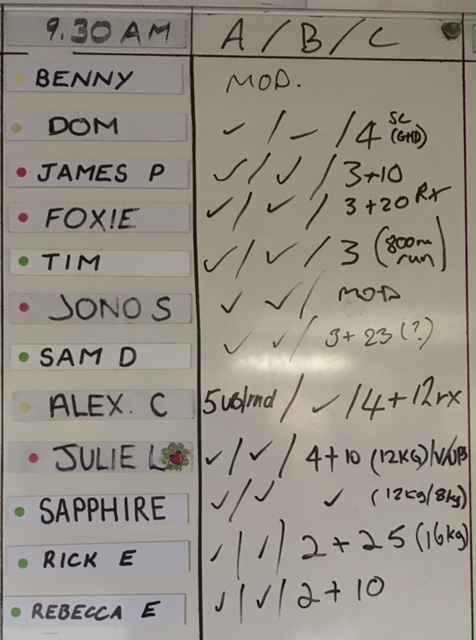 9.30 AM A / B / C
BENNY MOD.
DOM ✓ / ✓ / 4 SC (GHD)
JAMES P ✓ / ✓ / 3+10
FOXIE ✓ / ✓ / 3+20 RX
TIM ✓ / ✓ / 3 (800m run)
JONO S ✓ ✓ / MOD
SAM D ✓ ✓ / 3+23 (?)
ALEX. C / ✓ / 4+12 rx
JULIE L ✓ / ✓ / 4+10 (12KG)
SAPPHIRE ✓ / ✓ ✓ (12kg/8kg)
RICK E ✓ / ✓ / 2+25 (16kg)
REBECCA E ✓ / ✓ / 2+10